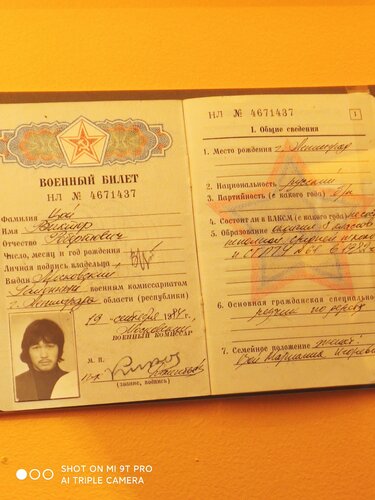 ВОЕННЫЙ БИЛЕТ
НЛ № 4671437
Фамилия Цой
Имя Виктор
Отчество Робертович
Число, месяц и год рождения
Личная подпись владельца
Выдан Московский
районным военным комиссариатом
г. Ленинграда области (республики)
ВОЕННЫЙ КОМИССАР
М. П.
(звание, подпись)
НЛ № 4671437
1
I. Общие сведения
1. Место рождения г. Ленинград
2. Национальность русский
3. Партийность (с какого года) б/п
4. Состоит ли в ВЛКСМ (с какого года)
5. Образование окончил 8 классов
6. Основная гражданская специально
резчик по дереву
7. Семейное положение женат
Цой Марианна Игоревна
SHOT ON MI 9T PRO
AI TRIPLE CAMERA